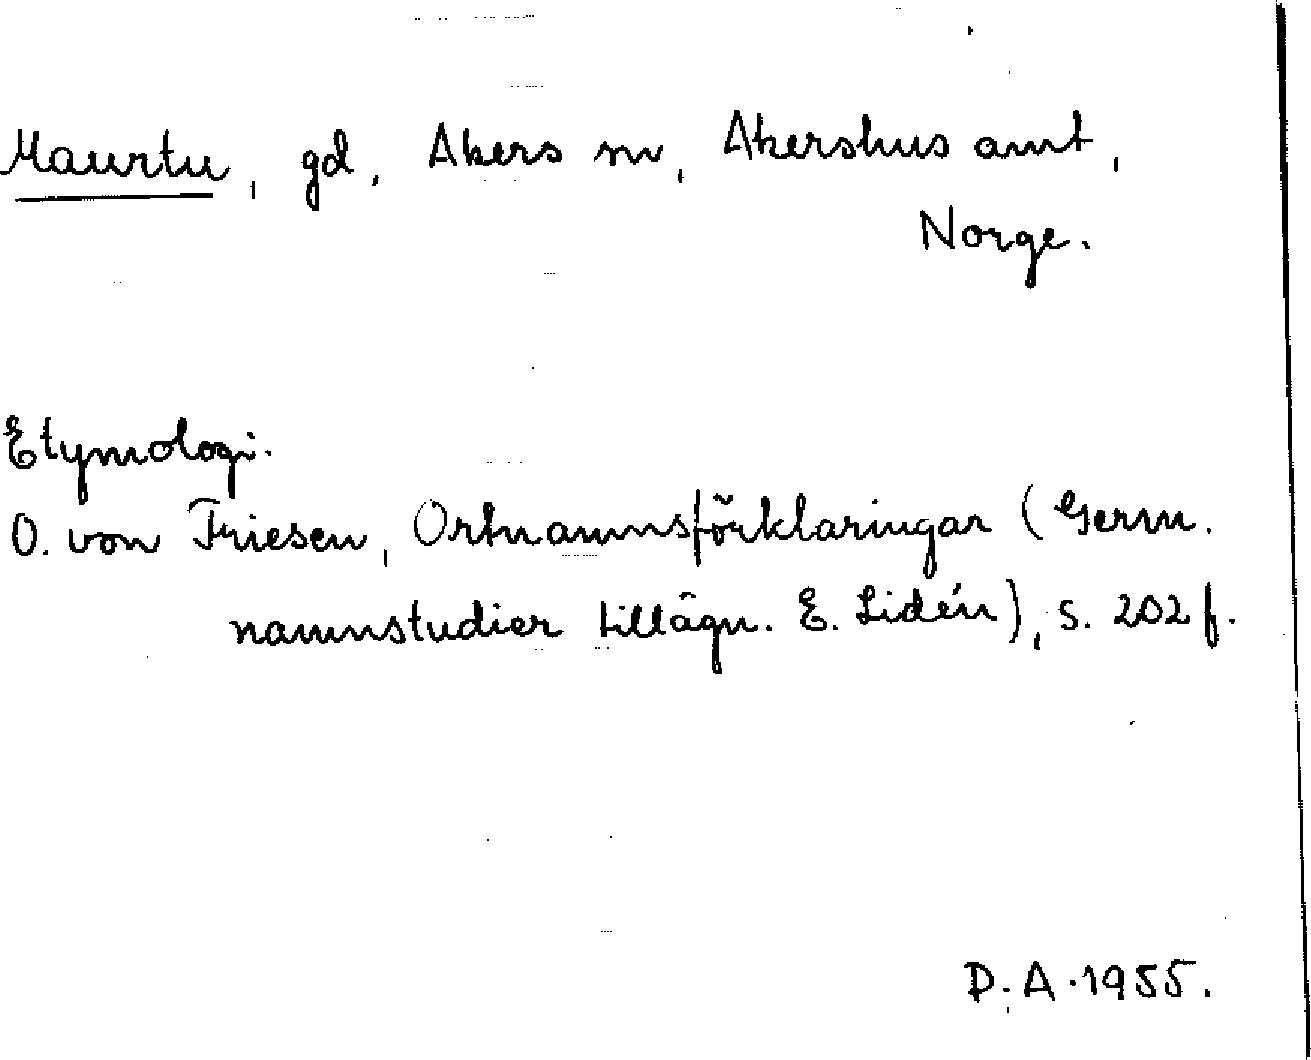 Maurtu, gd, Akers sn, Akershus amt,
Norge.
Etymologi.
O. von Friesen, Ortnamnsförklaringar (Germ.
namnstudier tillägn. E. Lidén), s. 202 f.
D. A. 1955.